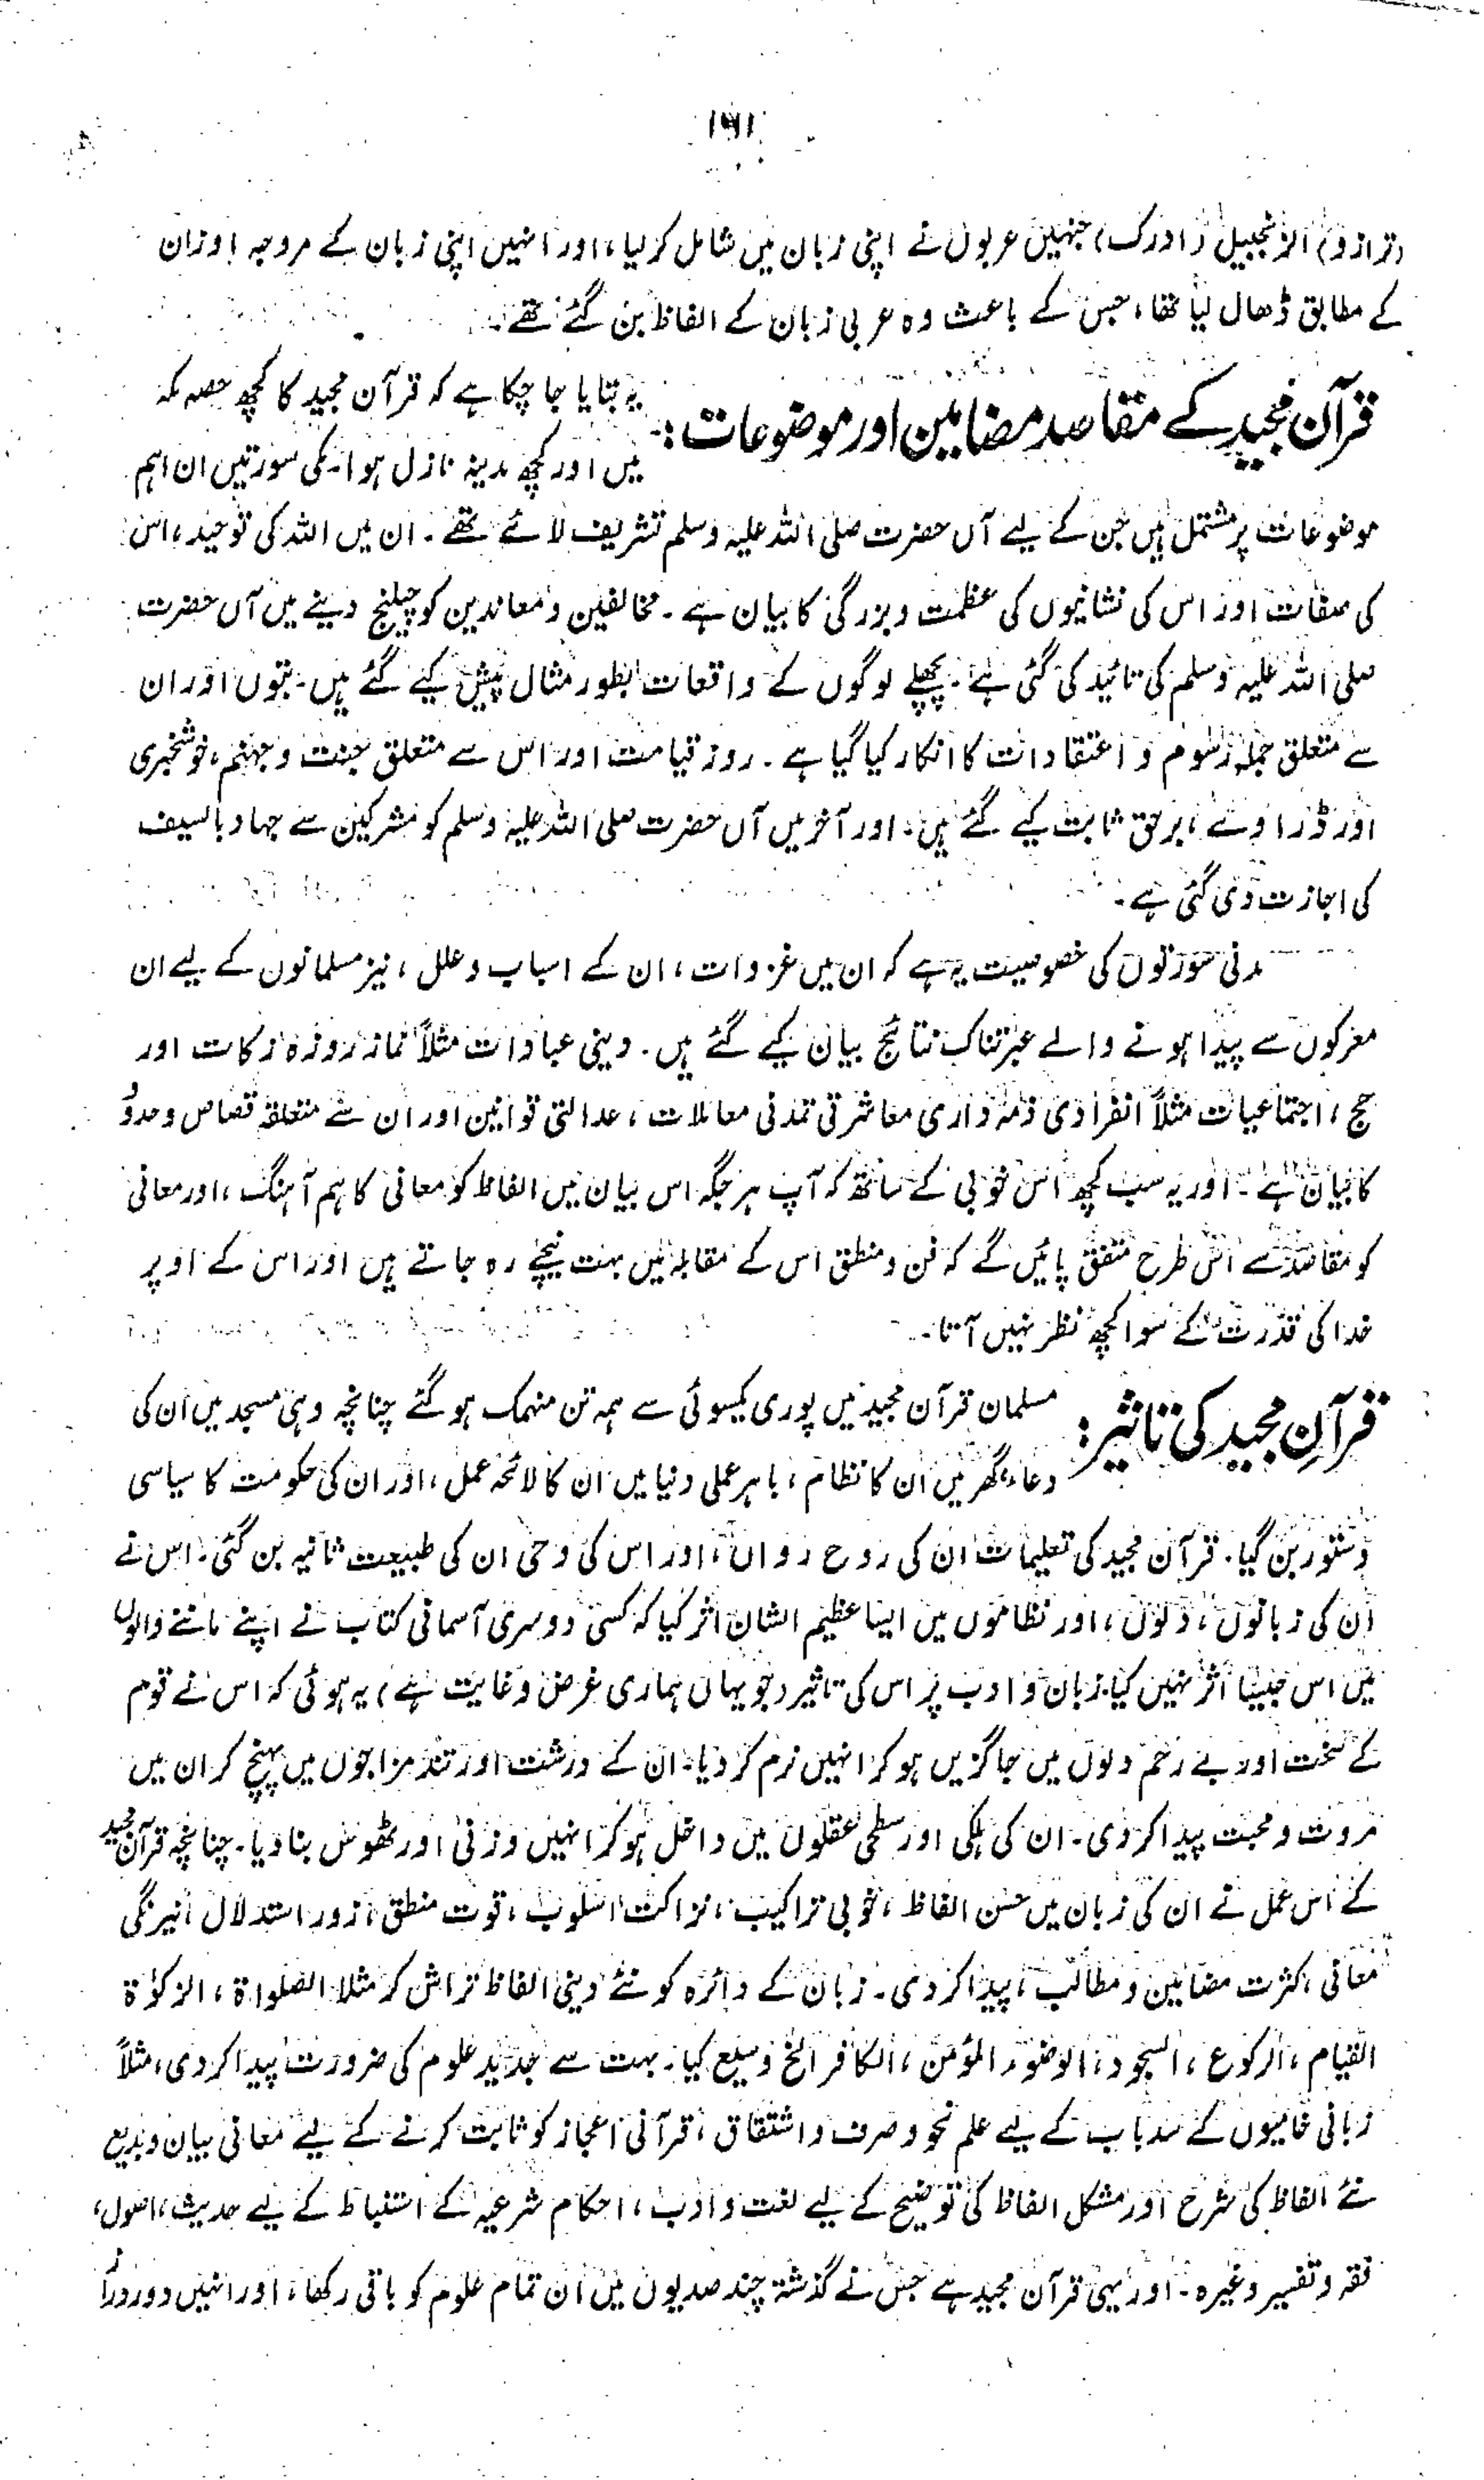 ۱۶۱
(ترازو) الزنجبیل (ادرک) جنہیں عربوں نے اپنی زبان میں شامل کر لیا، اور انہیں اپنی زبان کے مروجہ اوزان
کے مطابق ڈھال لیا تھا، جس کے باعث وہ عربی زبان کے الفاظ بن گئے تھے۔
قرآن مجید کے مقاصد مضامین اور موضوعات:
یہ بتایا جا چکا ہے کہ قرآن مجید کا کچھ حصہ مکہ
میں اور کچھ مدینہ نازل ہوا۔ مکی سورتیں ان اہم
موضوعات پر مشتمل ہیں جن کے لیے آں حضرت صلی اللہ علیہ وسلم تشریف لائے تھے۔ ان میں اللہ کی توحید، اس
کی صفات اور اس کی نشانیوں کی عظمت و بزرگی کا بیان ہے۔ مخالفین و معاندین کو چیلنج دینے میں آں حضرت
صلی اللہ علیہ وسلم کی تائید کی گئی ہے۔ پچھلے لوگوں کے واقعات بطور مثال پیش کیے گئے ہیں۔ بتوں اور ان
سے متعلق جملہ رسوم و اعتقادات کا انکار کیا گیا ہے۔ روز قیامت اور اس سے متعلق جنت و جہنم، خوشخبری
اور ڈراوے، برحق ثابت کیے گئے ہیں، اور آخر میں آں حضرت صلی اللہ علیہ وسلم کو مشرکین سے جہاد بالسیف
کی اجازت دی گئی ہے۔
مدنی سورتوں کی خصوصیت یہ ہے کہ ان میں غزوات، ان کے اسباب و علل، نیز مسلمانوں کے لیے ان
معرکوں سے پیدا ہونے والے عبرتناک نتائج بیان کیے گئے ہیں۔ دینی عبادات مثلاً نماز روزہ زکات اور
حج، اجتماعیات مثلاً انفرادی ذمہ داری معاشرتی تمدنی معاملات، عدالتی قوانین اور ان سے متعلقہ قصاص و حدود
کا بیان ہے۔ اور یہ سب کچھ اس خوبی کے ساتھ کہ آپ ہر جگہ اس بیان میں الفاظ کو معانی کا ہم آہنگ، اور معانی
کو مقاصد سے اس طرح متفق پائیں گے کہ فن و منطق اس کے مقابلہ میں بہت نیچے رہ جاتے ہیں اور اس کے اوپر
خدا کی قدرت کے سوا کچھ نظر نہیں آتا۔
قرآنِ مجید کی تاثیر:
مسلمان قرآن مجید میں پوری یکسوئی سے ہمہ تن منہمک ہو گئے چنانچہ وہی مسجد میں ان کی
دعا، گھر میں ان کا نظام، باہر عملی دنیا میں ان کا لائحہ عمل، اور ان کی حکومت کا سیاسی
دستور بن گیا۔ قرآن مجید کی تعلیمات ان کی روح رواں، اور اس کی وحی ان کی طبیعت ثانیہ بن گئی۔ اس نے
ان کی زبانوں، دلوں، اور نظاموں میں ایسا عظیم الشان اثر کیا کہ کسی دوسری آسمانی کتاب نے اپنے ماننے والوں
میں اس جیسا اثر نہیں کیا۔ زبان و ادب پر اس کی تاثیر (جو یہاں ہماری غرض و غایت ہے) یہ ہوئی کہ اس نے قوم
کے سخت اور بے رحم دلوں میں جاگزیں ہو کر انہیں نرم کر دیا۔ ان کے درشت اور تند مزاجوں میں پہنچ کر ان میں
مروت و محبت پیدا کر دی۔ ان کی ہلکی اور سطحی عقلوں میں داخل ہو کر انہیں وزنی اور ٹھوس بنا دیا۔ چنانچہ قرآن مجید
کے اس عمل نے ان کی زبان میں حسن الفاظ، خوبی تراکیب، نزاکت اسلوب، قوت منطق، زور استدلال، نیرنگی
معانی، کثرت مضامین و مطالب، پیدا کر دی۔ زبان کے دائرہ کو نئے دینی الفاظ تراش کر مثلا الصلواۃ، الزکوٰۃ
القیام، الرکوع، السجود، الوضوء، المؤمن، الکافر الخ وسیع کیا۔ بہت سے جدید علوم کی ضرورت پیدا کر دی، مثلاً
زبانی خامیوں کے سدباب کے لیے علم نحو و صرف و اشتقاق، قرآنی اعجاز کو ثابت کرنے کے لیے معانی بیان و بدیع
نئے الفاظ کی شرح اور مشکل الفاظ کی توضیح کے لیے لغت و ادب، احکام شرعیہ کے استنباط کے لیے حدیث، اصول،
فقہ و تفسیر وغیرہ۔ اور یہی قرآن مجید ہے جس نے گذشتہ چند صدیوں میں ان تمام علوم کو باقی رکھا، اور انہیں دور دراز